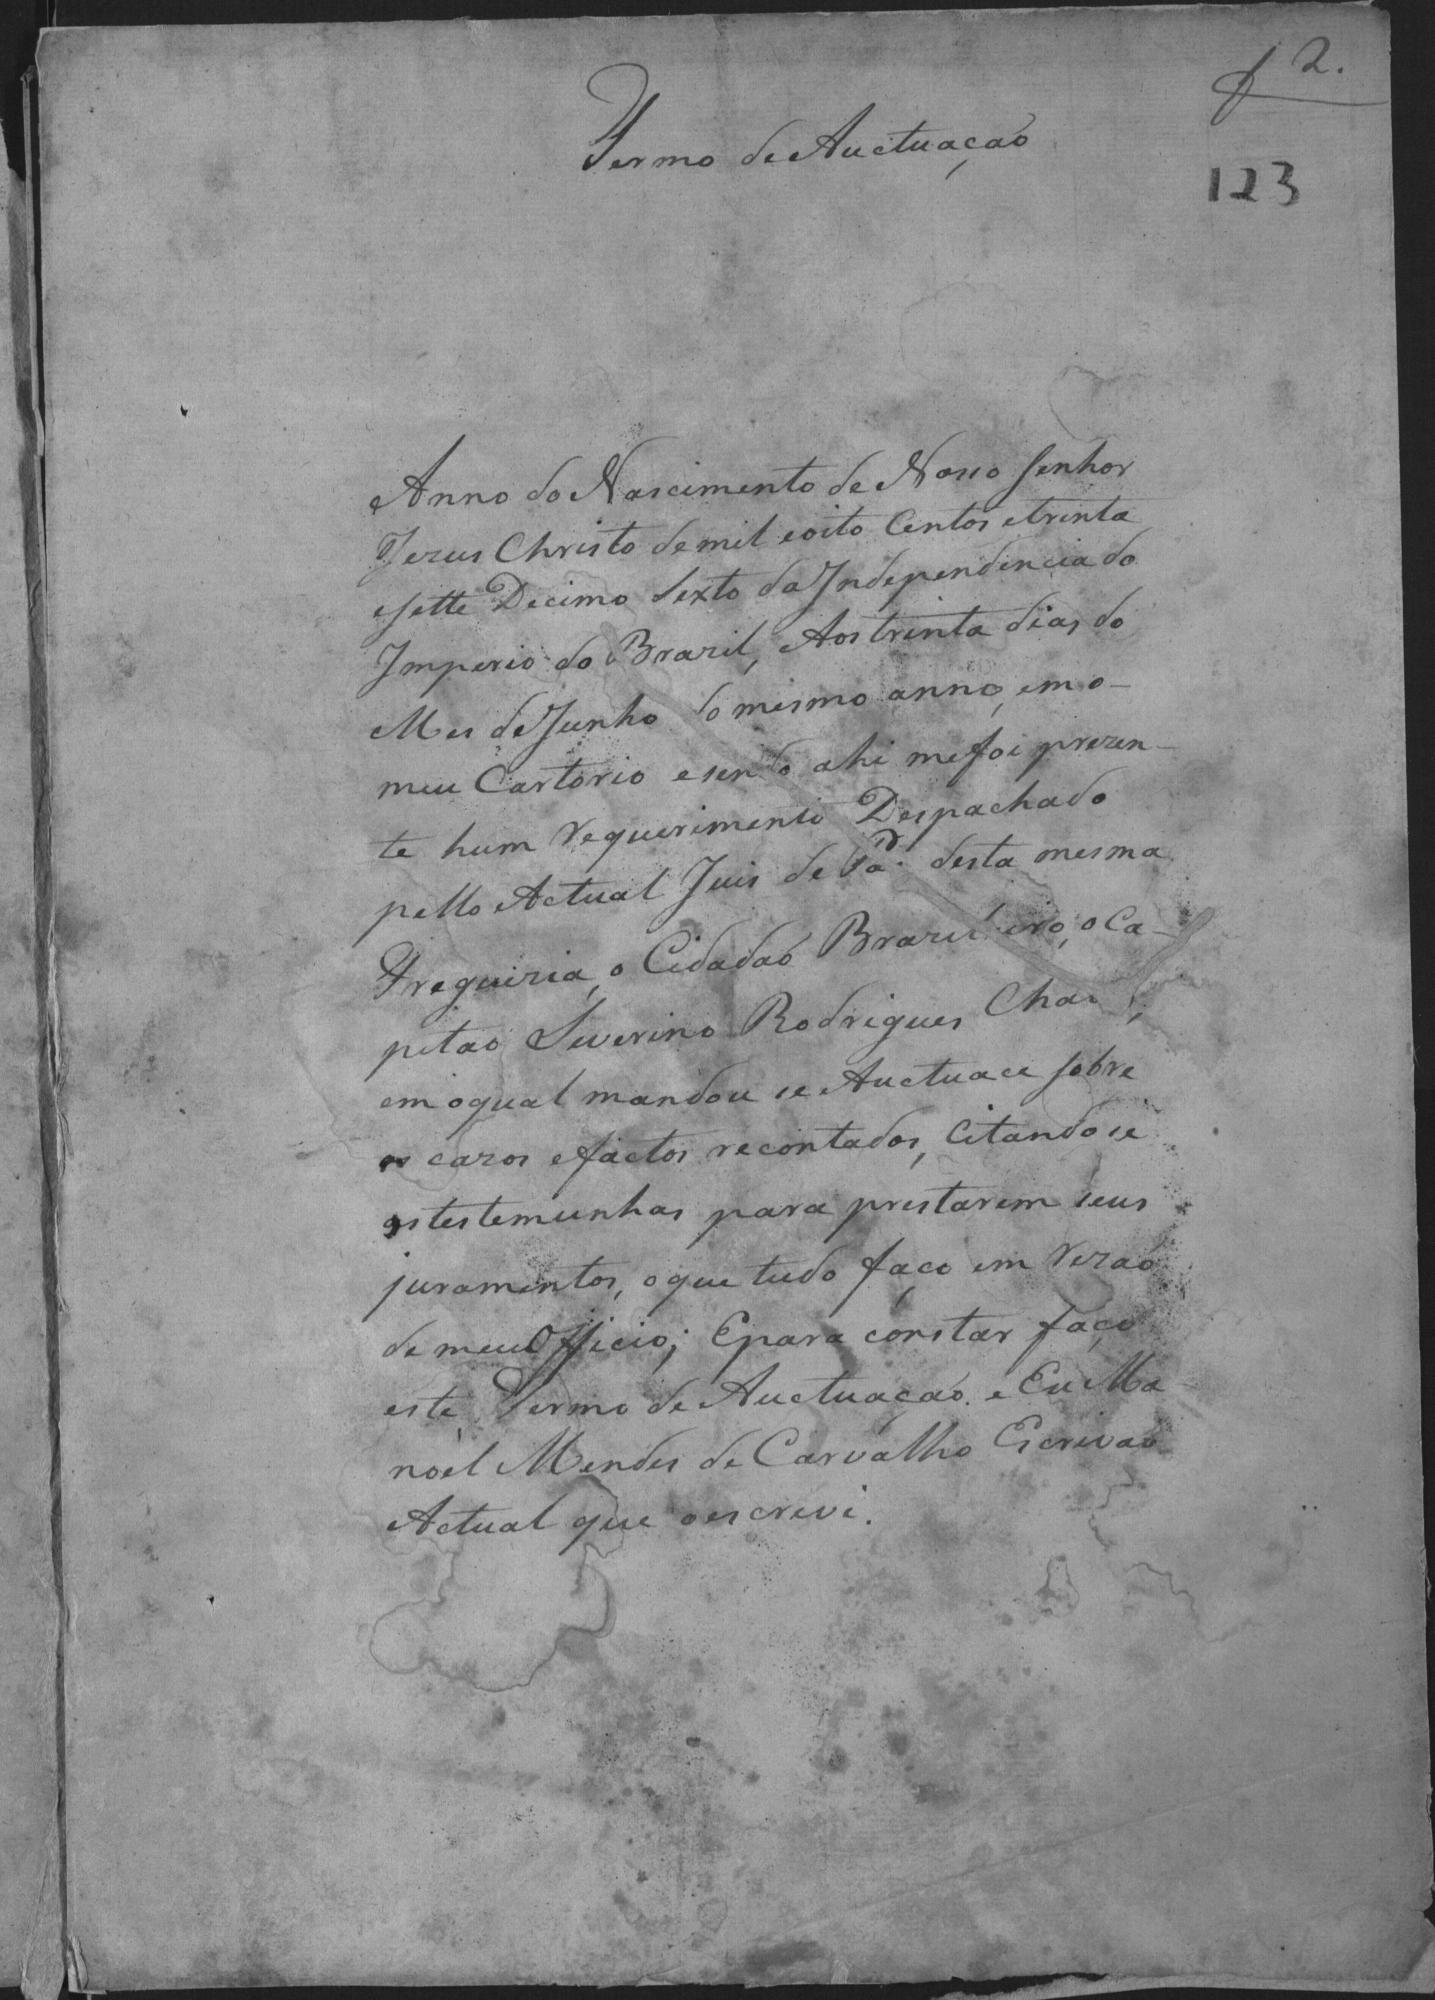 f 2.
Termo de Auctuação
123
Anno do Nascimento de Nosso Senhor
Jezus Christo de mil e oito Centos e trinta
e sette Decimo Sexto da Independencia do
Imperio do Brazil, Aos trinta dias do
Mes de Junho do mesmo anno, em o
meu Cartorio e sendo ahi me foi prezen-
te hum requerimento Despachado
pello Actual Juis de desta mesma
Freguizia, o Cidadaõ Brazileiro, o Ca-
pitao Severino Rodrigues
em o qual mandou se Auctuace sobre
os cazos e factos recontados, Citando se
as testemunhas para prestarem seus
juramentos, o que tudo faço em rezaõ
de meu Officio; E para constar faço
este Termo de Auctuação. e Eu Ma
noel Mendes de Carvalho Escrivaõ
Actual que o escrevi.